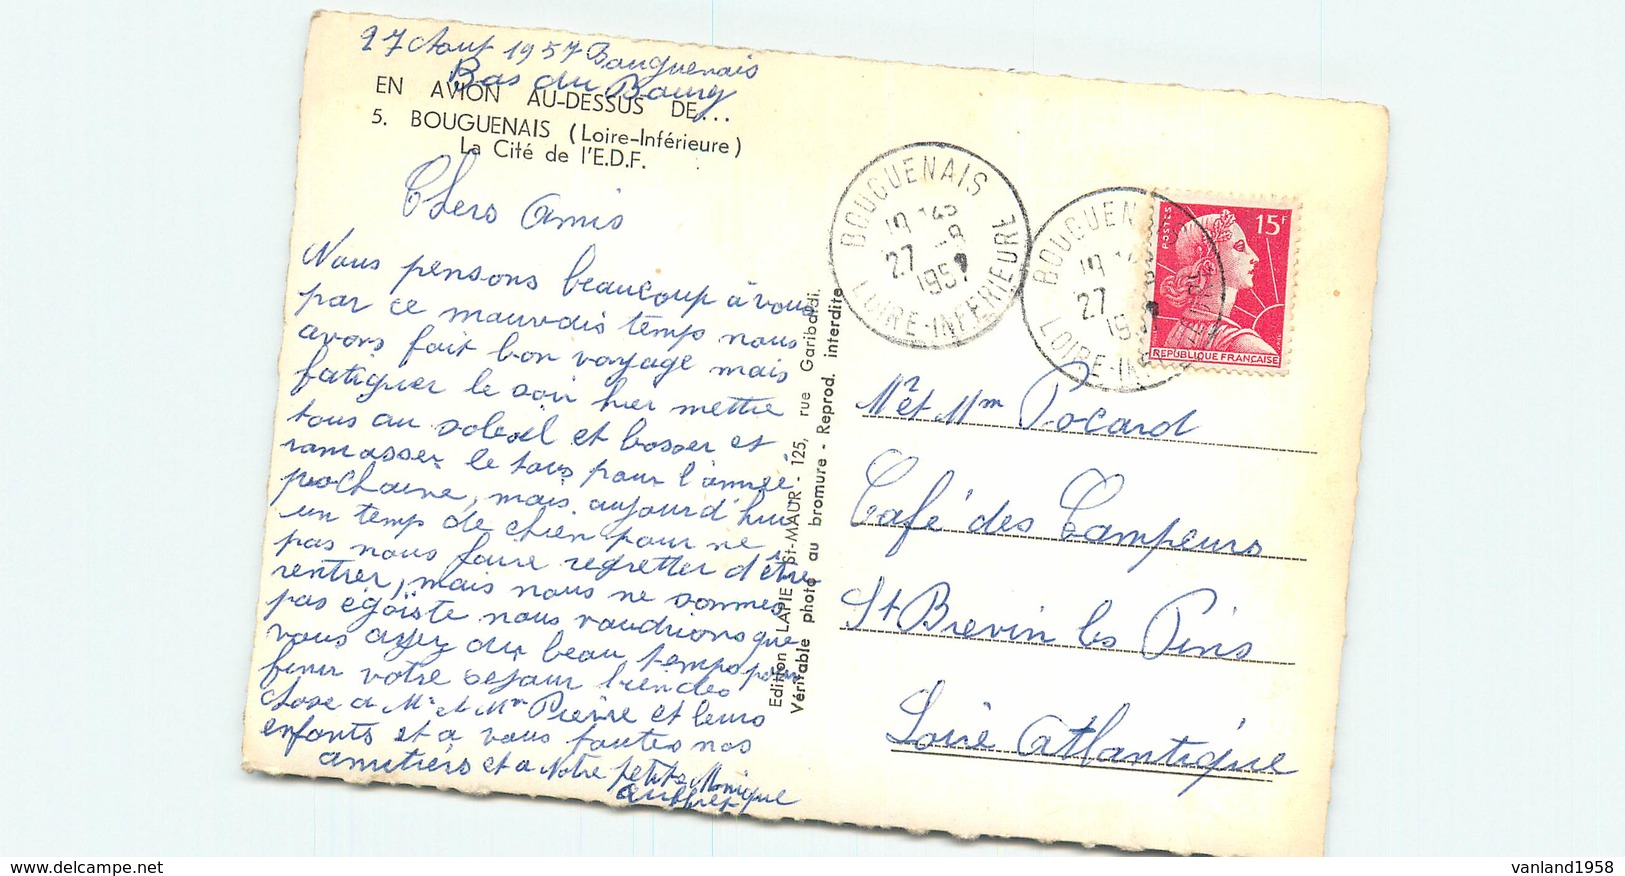 27 Aout 1957 Bouguenais
Bas du Bourg
EN AVION AU-DESSUS DE...
5. BOUGUENAIS (Loire-Inférieure)
La Cité de l'E.D.F.
Chers Amis
Nous pensons beaucoup à vous
par ce mauvais temps nous
avons fait bon voyage mais
fatiguer le soir hier mettre
tous au soleil et bosser et
ramasser le tous pour l'année
prochaine, mais aujourd'hui
un temps de chien pour ne
pas nous faire regretter d'être
rentrer, mais nous ne sommes
pas égoïste nous voudrions que
vous ayez du beau temps pour
finir votre séjour bien des
chose a Mr et Mme Pierre et leurs
enfants et a vous toutes nos
amitiers et a Notre petite Monique
Edition LAPIE St-MAUR - 125, rue Garibaldi.
Véritable photo au bromure - Reprod. interdite
BOUGUENAIS
27 -8
1957
LOIRE-INFERIEURE
BOUGUENAIS
27
LOIRE-INFERIEURE
POSTES
15F
REPUBLIQUE FRANCAISE
Mr et Mme Pocard
Café des Campeurs
St Brevin les Pins
Loire Atlantique
delcampe.net
vanland1958